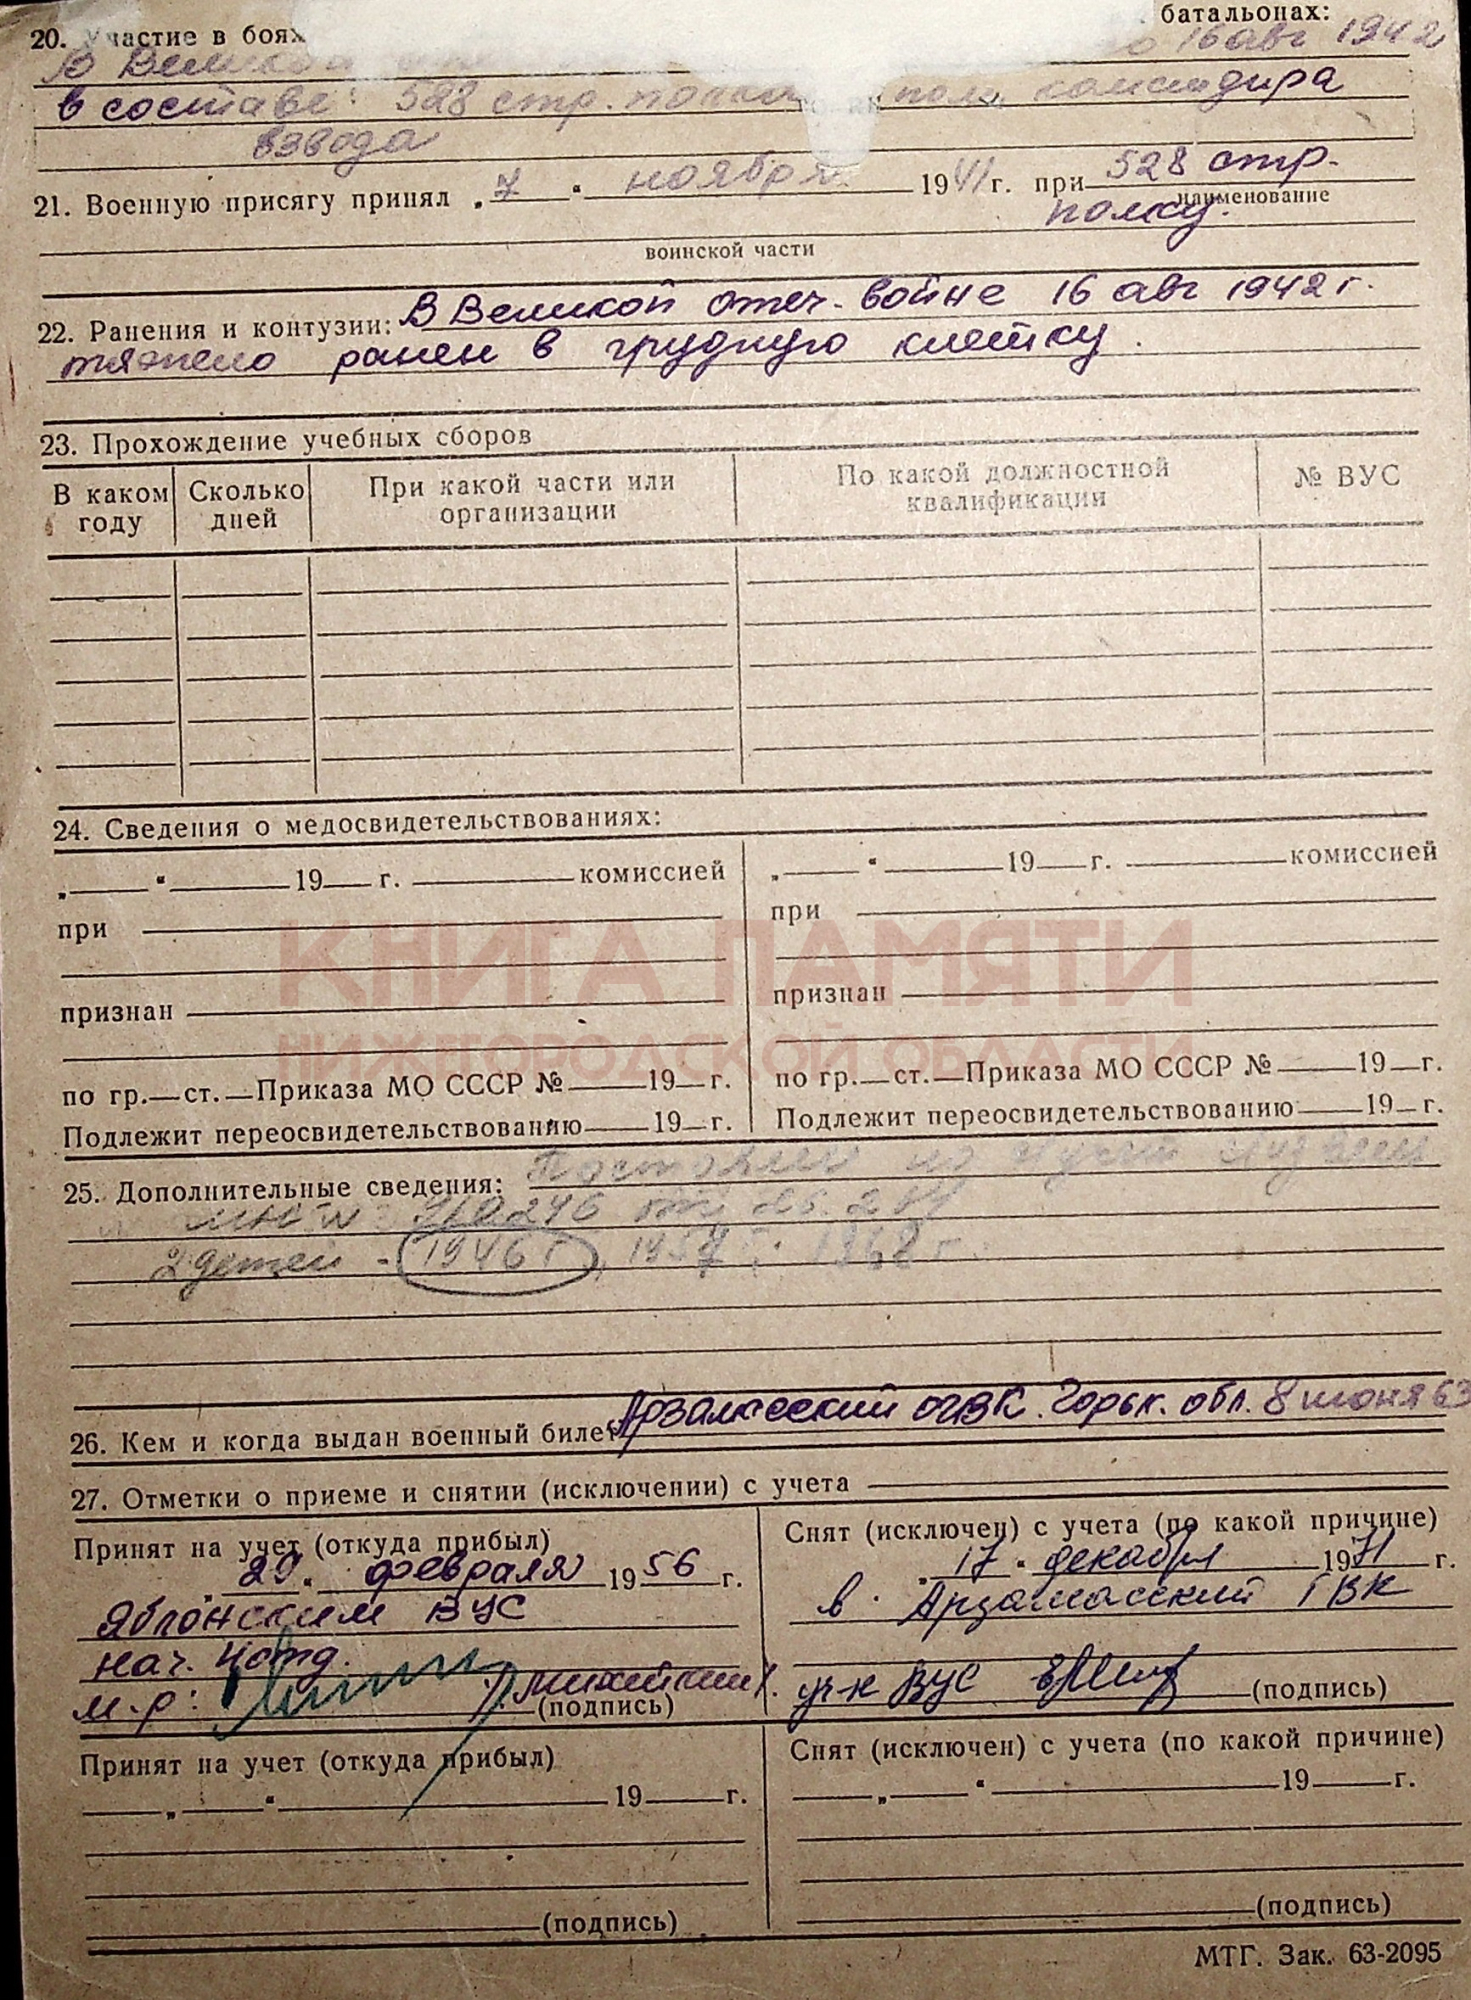 20. Участие в боях батальонах:
В Великой 16 авг 1942
в составе: 528 стр. полка пом. командира
взвода
21. Военную присягу принял „7“ ноября 1941 г. при 528 стр.
наименование
полку.
воинской части
22. Ранения и контузии: В Великой отеч. войне 16 авг 1942 г.
тяжело ранен в грудную клетку.
23. Прохождение учебных сборов
В каком году Сколько дней При какой части или организации По какой должностной квалификации № ВУС
24. Сведения о медосвидетельствованиях:
„ “ 19 г. комиссией „ “ 19 г. комиссией
при при
КНИГА ПАМЯТИ
признан признан
НИЖЕГОРОДСКОЙ ОБЛАСТИ
по гр. ст. Приказа МО СССР № 19 г. по гр. ст. Приказа МО СССР № 19 г.
Подлежит переосвидетельствованию 19 г. Подлежит переосвидетельствованию 19 г.
25. Дополнительные сведения:
от
2 детей - 1946 г, 1957 г.
26. Кем и когда выдан военный билет Арзамасский ОГВК. Горьк. обл. 8 июня 63
27. Отметки о приеме и снятии (исключении) с учета
Принят на учет (откуда прибыл) Снят (исключен) с учета (по какой причине)
„29“ февраля 1956 г. „17“ декабря 1971 г.
Яблонским ВУС в Арзамасский ГВК
нач. 4 отд.
м-р: (подпись) уч-к ВУС (подпись)
Принят на учет (откуда прибыл) Снят (исключен) с учета (по какой причине)
„ “ 19 г. „ “ 19 г.
(подпись) (подпись)
МТГ. Зак. 63-2095